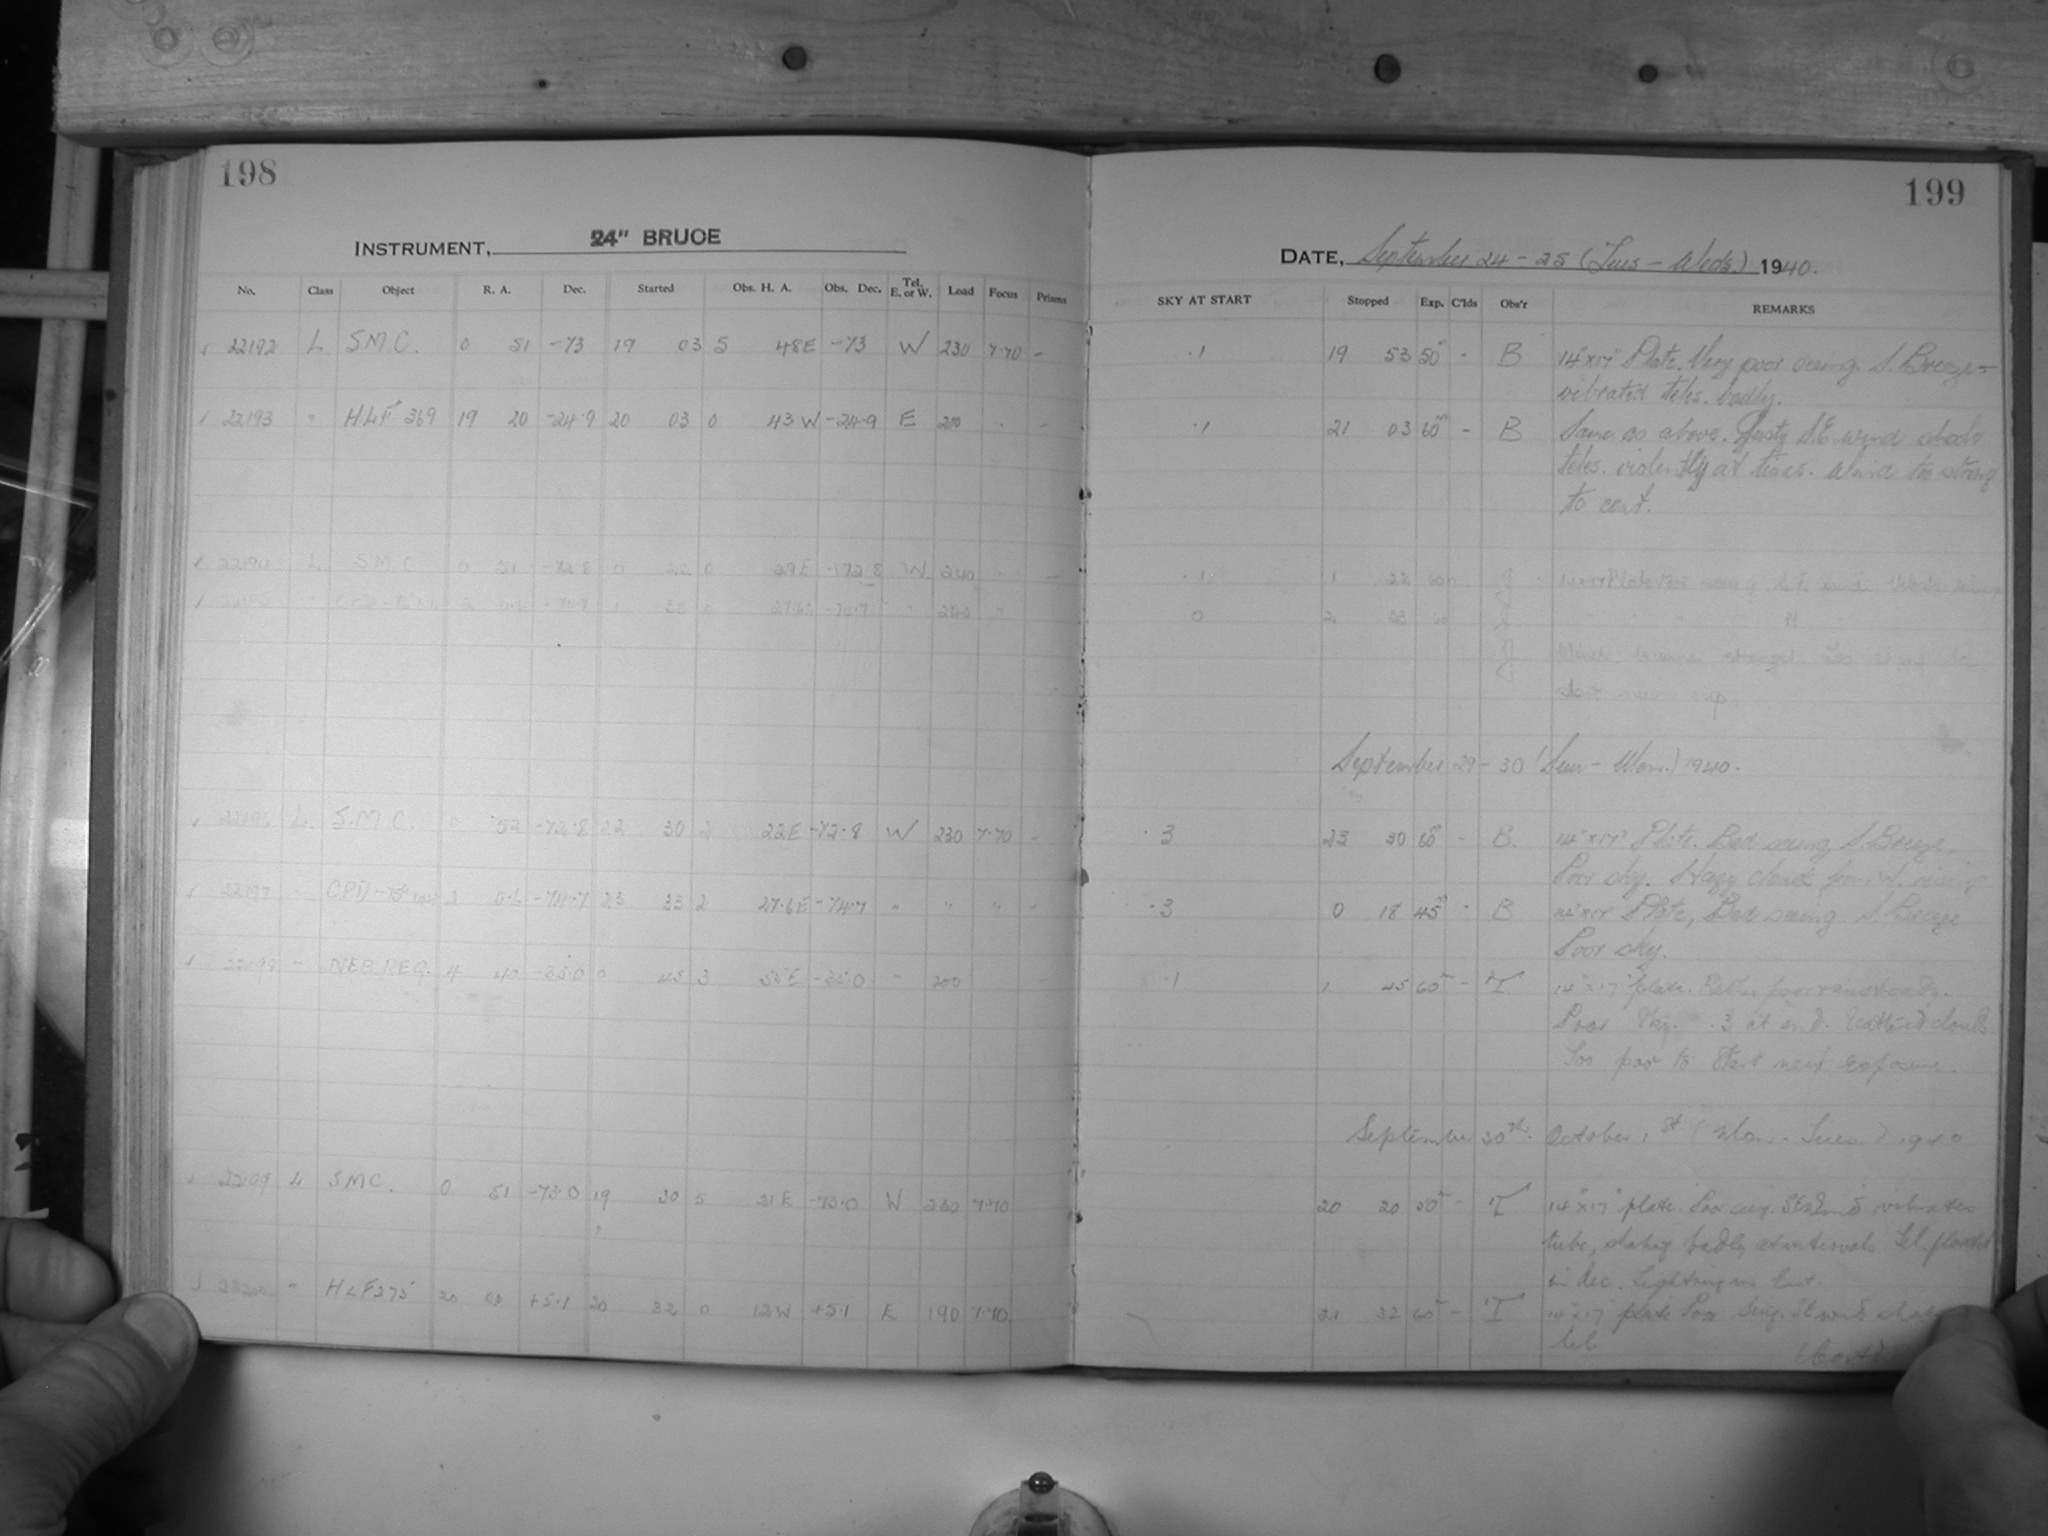 198
INSTRUMENT, 24" BRUCE
No. Class Object R. A. Dec. Started Obs. H. A. Obs. Dec. Tel. E. or W. Load Focus Prisms
22192 L S.M.C. 0 51 -73 19 03 5 48E -73 W 230 7.70 -
22193 " HLF 369 19 20 -24.9 20 03 0 43 W -24.9 E 210
22194 L S.M.C 0 51 -72.8 0 22 0 29E -72.8 W 240
-74.7 27.6E -74.7
22196 L. S.M.C. 0 52 -72.8 22 30 2 22E -72.8 W 230 7.70 -
22197 " CPD -75° 2 0.6 -74.7 23 33 2 27.6E -74.7 " " " -
22198 " NEB REG. 4 40 -35.0 0 45 3 55E -35.0 " 200
22199 L SMC. 0 51 -73.0 19 30 5 21E -73.0 W 230 7.70
22200 " HLF 375 20 +5.1 20 32 0 12W +5.1 E 190 7.70
199
DATE, September 24-25 (Tues - Weds) 1940.
SKY AT START Stopped Exp. C'lds Obs'r REMARKS
.1 19 53 50m - B 14"x17" Plate. Very poor seeing. S. Breeze -
vibrated teles. badly.
.1 21 03 60m - B Same as above. Gusty S.E wind shook
teles. violently at times. Wind too strong
to cont.
.1 1 22 60m J 14x17 Plate seeing S.E. wind
0 2 33 60 J " "
J Wind became stronger too
start new exp.
September 29-30 (Sun - Mon.) 1940.
.3 23 30 60m - B. 14"x17" Plate. Bad seeing S. Breeze.
Poor sky. Hazy clouds from W.
.3 0 18 45m - B 14"x17" Plate, Bad seeing S. Breeze
Poor sky.
.1 1 45 60m - T 14"x17" plate. Rather poor
Poor sky. .3 at end. Scattered clouds
Too poor to start next exposure.
September 30th. October 1st (Mon. - Tues.) 1940
20 20 50m - T 14"x17" plate. Poor vibrates
tube, shaking badly at intervals Tel.
in dec. Lightning in East.
21 32 60m - T 14"x17" plate Poor Seeing.
tel. (Cont)